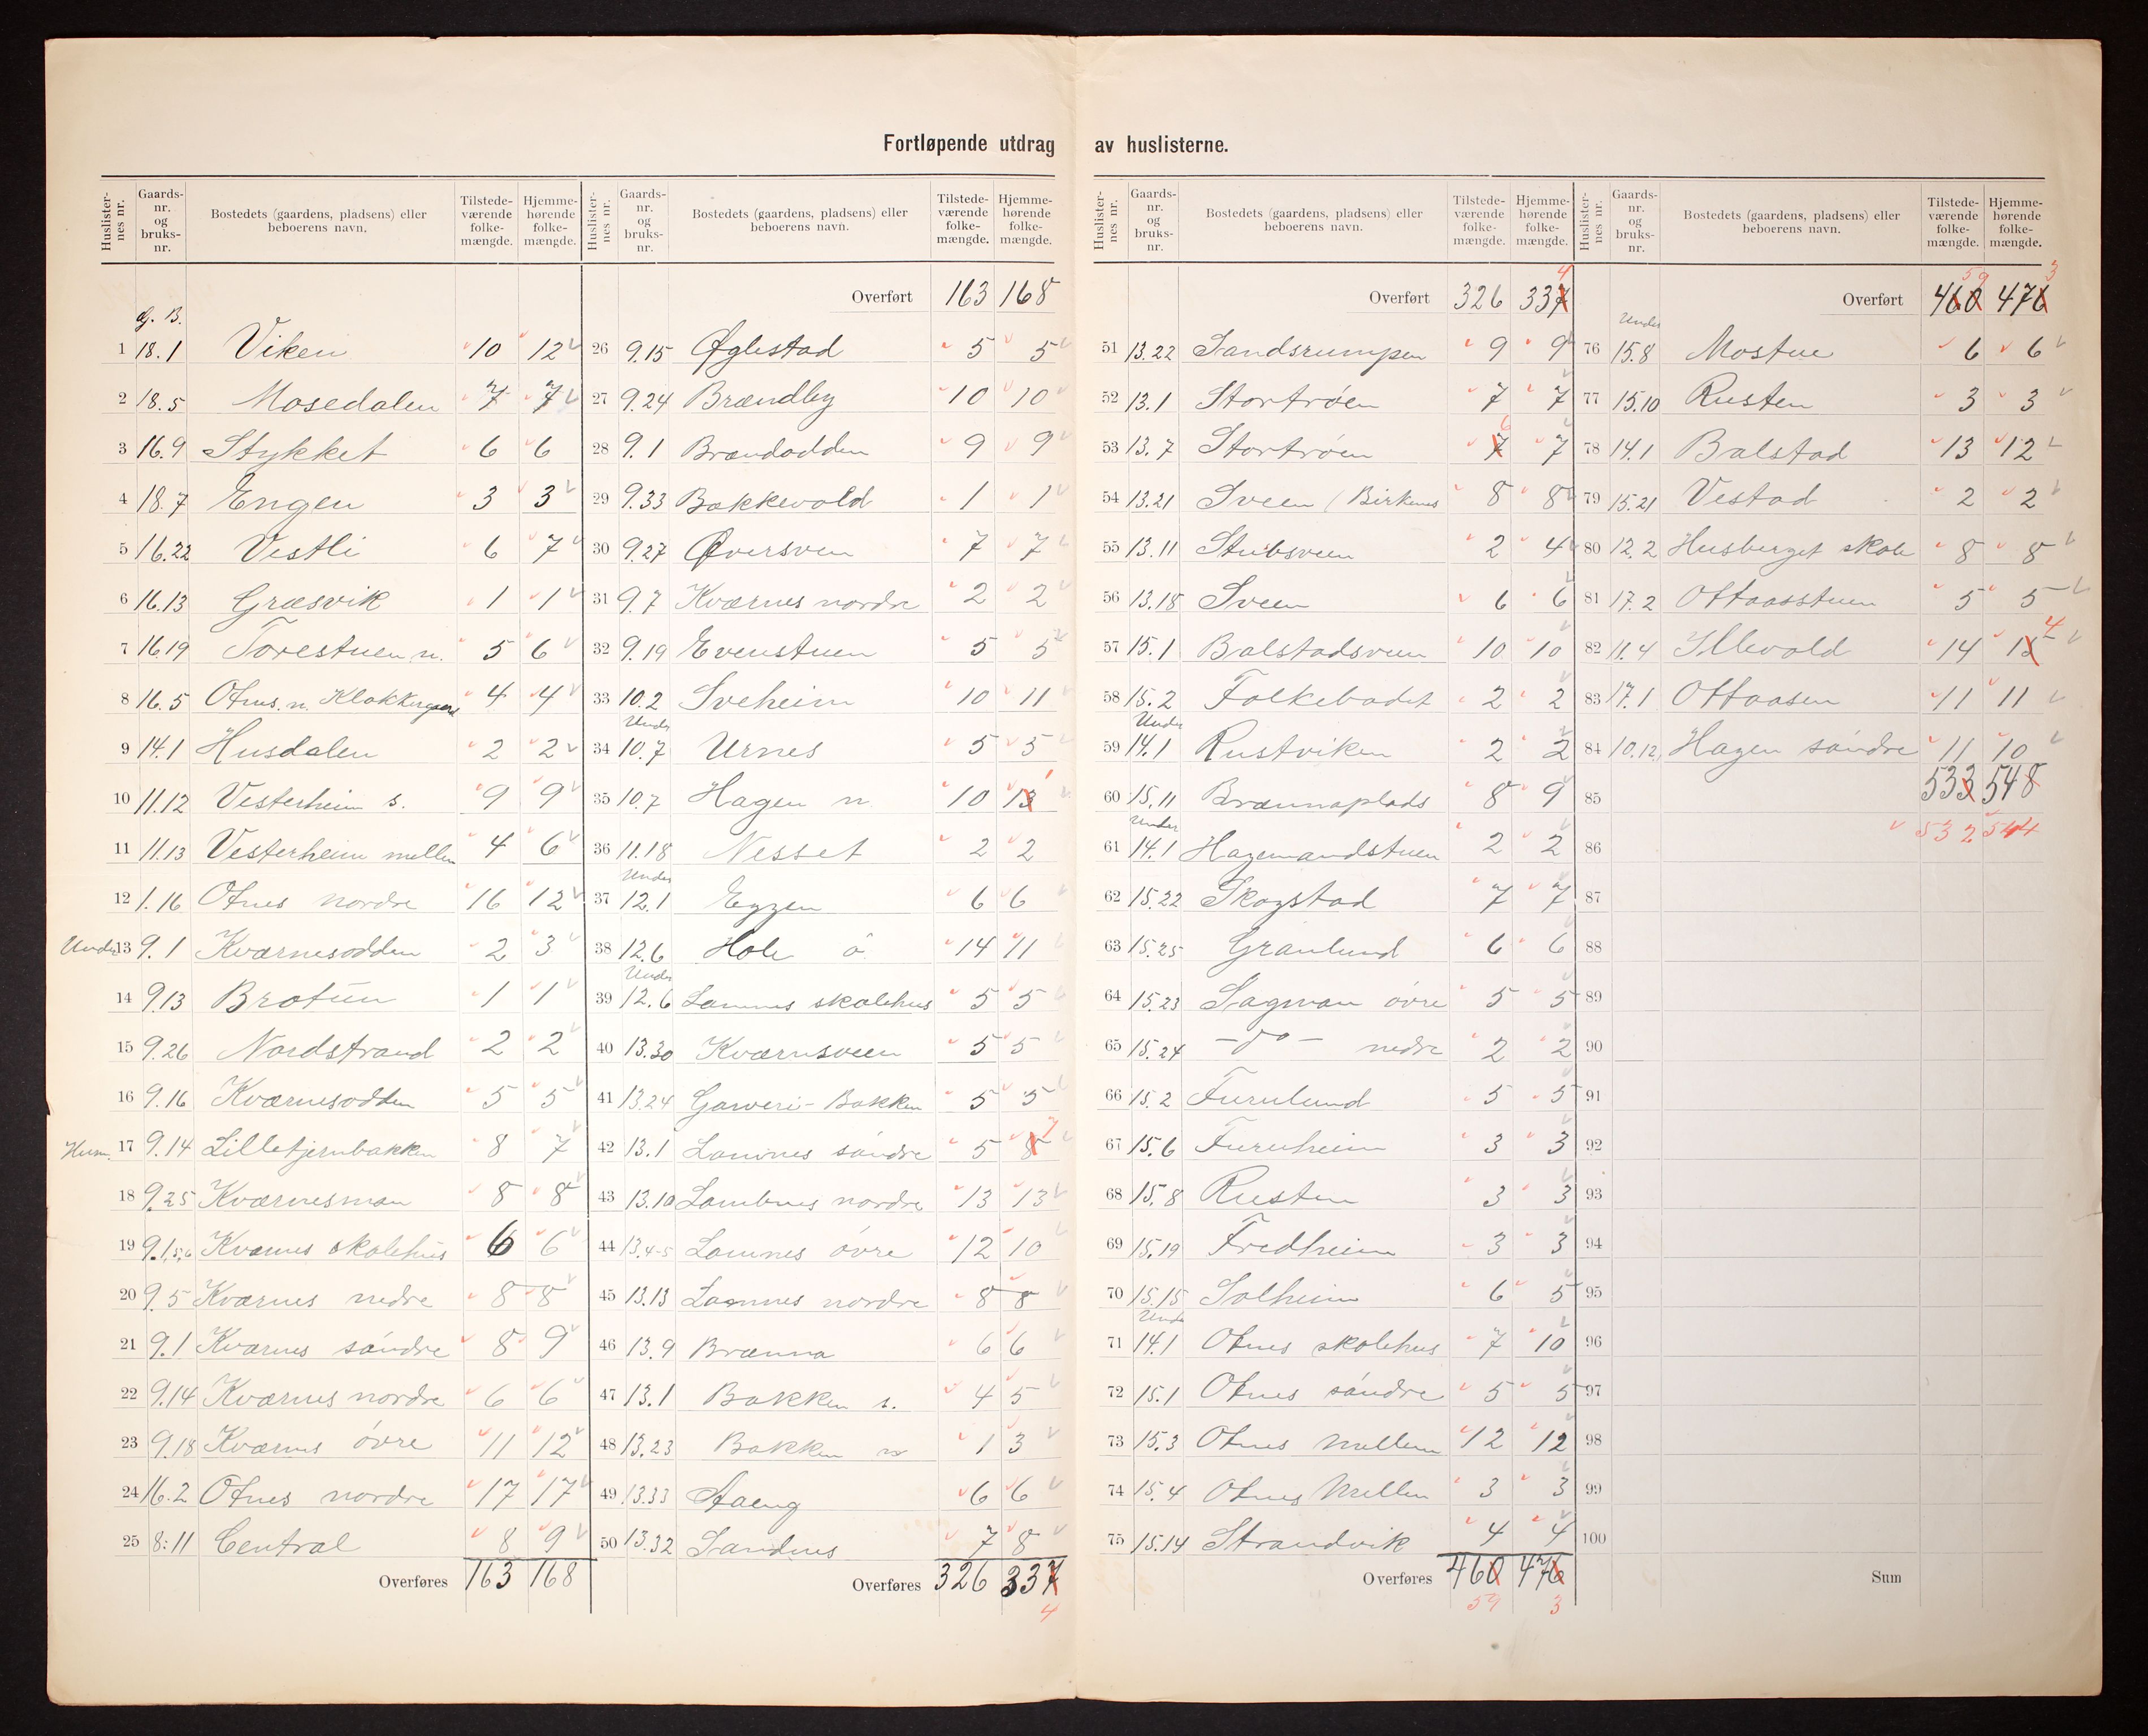 Fortløpende utdrag av huslisterne.
Huslister-nes nr. Gaards-nr. og bruks-nr. Bostedets (gaardens, pladsens) eller beboerens navn. Tilstede-værende folke-mængde. Hjemme-hørende folke-mængde.
G. B.
1 18.1 Viken 10 12
2 18.5 Mosedalen 7 7
3 16.9 Stykket 6 6
4 18.7 Engen 3 3
5 16.22 Vestli 6 7
6 16.13 Græsvik 1 1
7 16.19 Torestuen n. 5 6
8 16.5 Otnes. n. Klokkergaard 4 4
9 14.1 Husdalen 2 2
10 11.12 Vesterheim s. 9 9
11 11.13 Vesterheim mellem 4 6
12 1.16 Otnes nordre 16 12
Under 13 9.1 Kværnesodden 2 3
14 9.13 Brotün 1 1
15 9.26 Nordstrand 2 2
16 9.16 Kværnesodden 5 5
Hum. 17 9.14 Lilletjernbakken 8 7
18 9.25 Kværnesmoen 8 8
19 9.1,5,6 Kværnes skolehus 6 6
20 9.5 Kværnes nedre 8 8
21 9.1 Kværnes søndre 8 9
22 9.14 Kværnes nordre 6 6
23 9.18 Kværnes övre 11 12
24 16.2 Otnes nordre 17 17
25 8:11 Central 8 9
Overføres 163 168
Huslister-nes nr. Gaards-nr. og bruks-nr. Bostedets (gaardens, pladsens) eller beboerens navn. Tilstede-værende folke-mængde. Hjemme-hørende folke-mængde.
Overført 163 168
26 9.15 Øglestad 5 5
27 9.24 Brændby 10 10
28 9.1 Brændodden 9 9
29 9.33 Bakkevold 1 1
30 9.27 Øversveen 7 7
31 9.7 Kværnes nordre 2 2
32 9.19 Evenstuen 5 5
33 10.2 Sveheim 10 11
Under
34 10.7 Urnes 5 5
35 10.7 Hagen n. 10 13 1
36 11.18 Nesset 2 2
Under
37 12.1 Eggen 6 6
38 12.6 Hole ö. 14 11
Under
39 12.6 Lomnes skolehus 5 5
40 13.30 Kværnsveen 5 5
41 13.24 Garveri-Bakken 5 5
42 13.1 Lomnes söndre 5 8 7
43 13.10 Lombnes nordre 13 13
44 13.4-5 Lomnes övre 12 10
45 13.13 Lomnes nordre 8 8
46 13.9 Brænna 6 6
47 13.1 Bakken s. 4 5
48 13.23 Bakken n 1 3
49 13.33 Aaeng 6 6
50 13.32 Sandnes 7 8
Overføres 326 337
4
Huslister-nes nr. Gaards-nr. og bruks-nr. Bostedets (gaardens, pladsens) eller beboerens navn. Tilstede-værende folke-mængde. Hjemme-hørende folke-mængde.
4
Overført 326 337
51 13.22 Sandsrumpen 9 9
52 13.1 Stortröen 7 7
53 13.7 Stortröen 7 6 7
54 13.21 Sveen (Birkenes 8 8
55 13.11 Stubsveen 2 4
56 13.18 Sveen 6 6
57 15.1 Balstadsveen 10 10
58 15.2 Folkebadet 2 2
Under
59 14.1 Rustviken 2 2
60 15.11 Brænnaplads 8 9
Under
61 14.1 Hagemandstuen 2 2
62 15.22 Skogstad 7 7
63 15.25 Granlund 6 6
64 15.23 Sagmoen övre 5 5
65 15.24 -do- nedre 2 2
66 15.2 Furulund 5 5
67 15.6 Furuheim 3 3
68 15.8 Rusten 3 3
69 15.19 Fredheim 3 3
70 15.15 Solheim 6 5
Under
71 14.1 Otnes skolehus 7 10
72 15.1 Otnes söndre 5 5
73 15.3 Otnes mellem 12 12
74 15.4 Otnes Mellem 3 3
75 15.14 Strandvik 4 4
Overføres 460 476
59 3
Huslister-nes nr. Gaards-nr. og bruks-nr. Bostedets (gaardens, pladsens) eller beboerens navn. Tilstede-værende folke-mængde. Hjemme-hørende folke-mængde.
59 3
Overført 460 476
Under
76 15.8 Mostue 6 6
77 15.10 Rusten 3 3
78 14.1 Balstad 13 12
79 15.21 Vestad 2 2
80 12.2 Husberget skole 8 8
81 17.2 Ottaasstuen 5 5
82 11.4 Illevold 14 15 4
83 17.1 Ottaasen 11 11
84 10.12, Hagen söndre 11 10
85 533 548
86 532 544
87
88
89
90
91
92
93
94
95
96
97
98
99
100
Sum